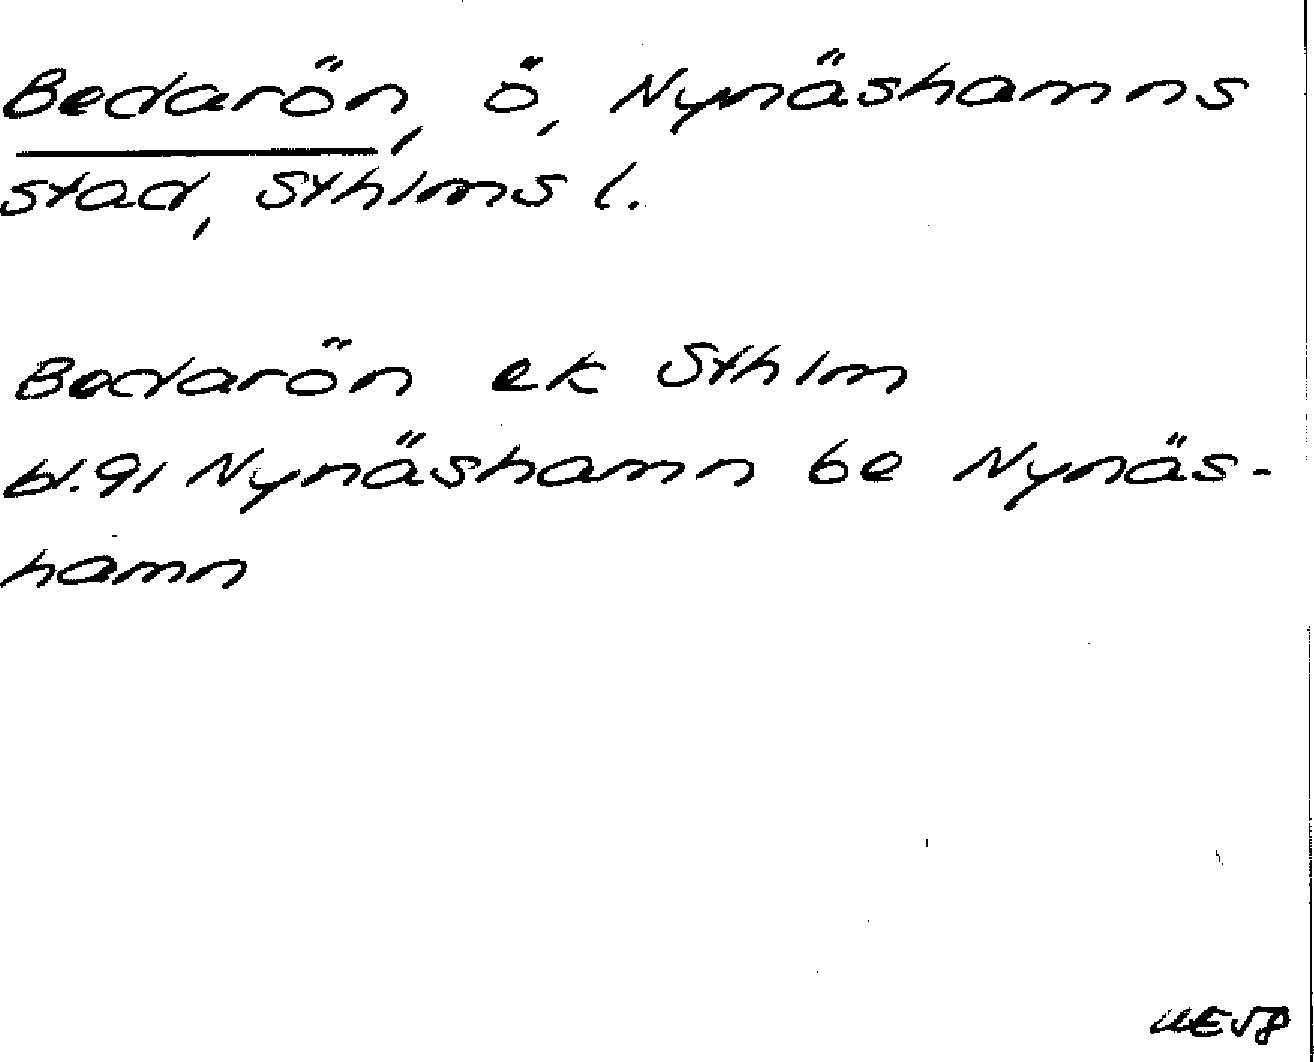 Bedarön, ö, Nynäshamns
stad, Sthlms l.
Bedarön ek Sthlm
bl. 91 Nynäshamn be Nynäs-
hamn